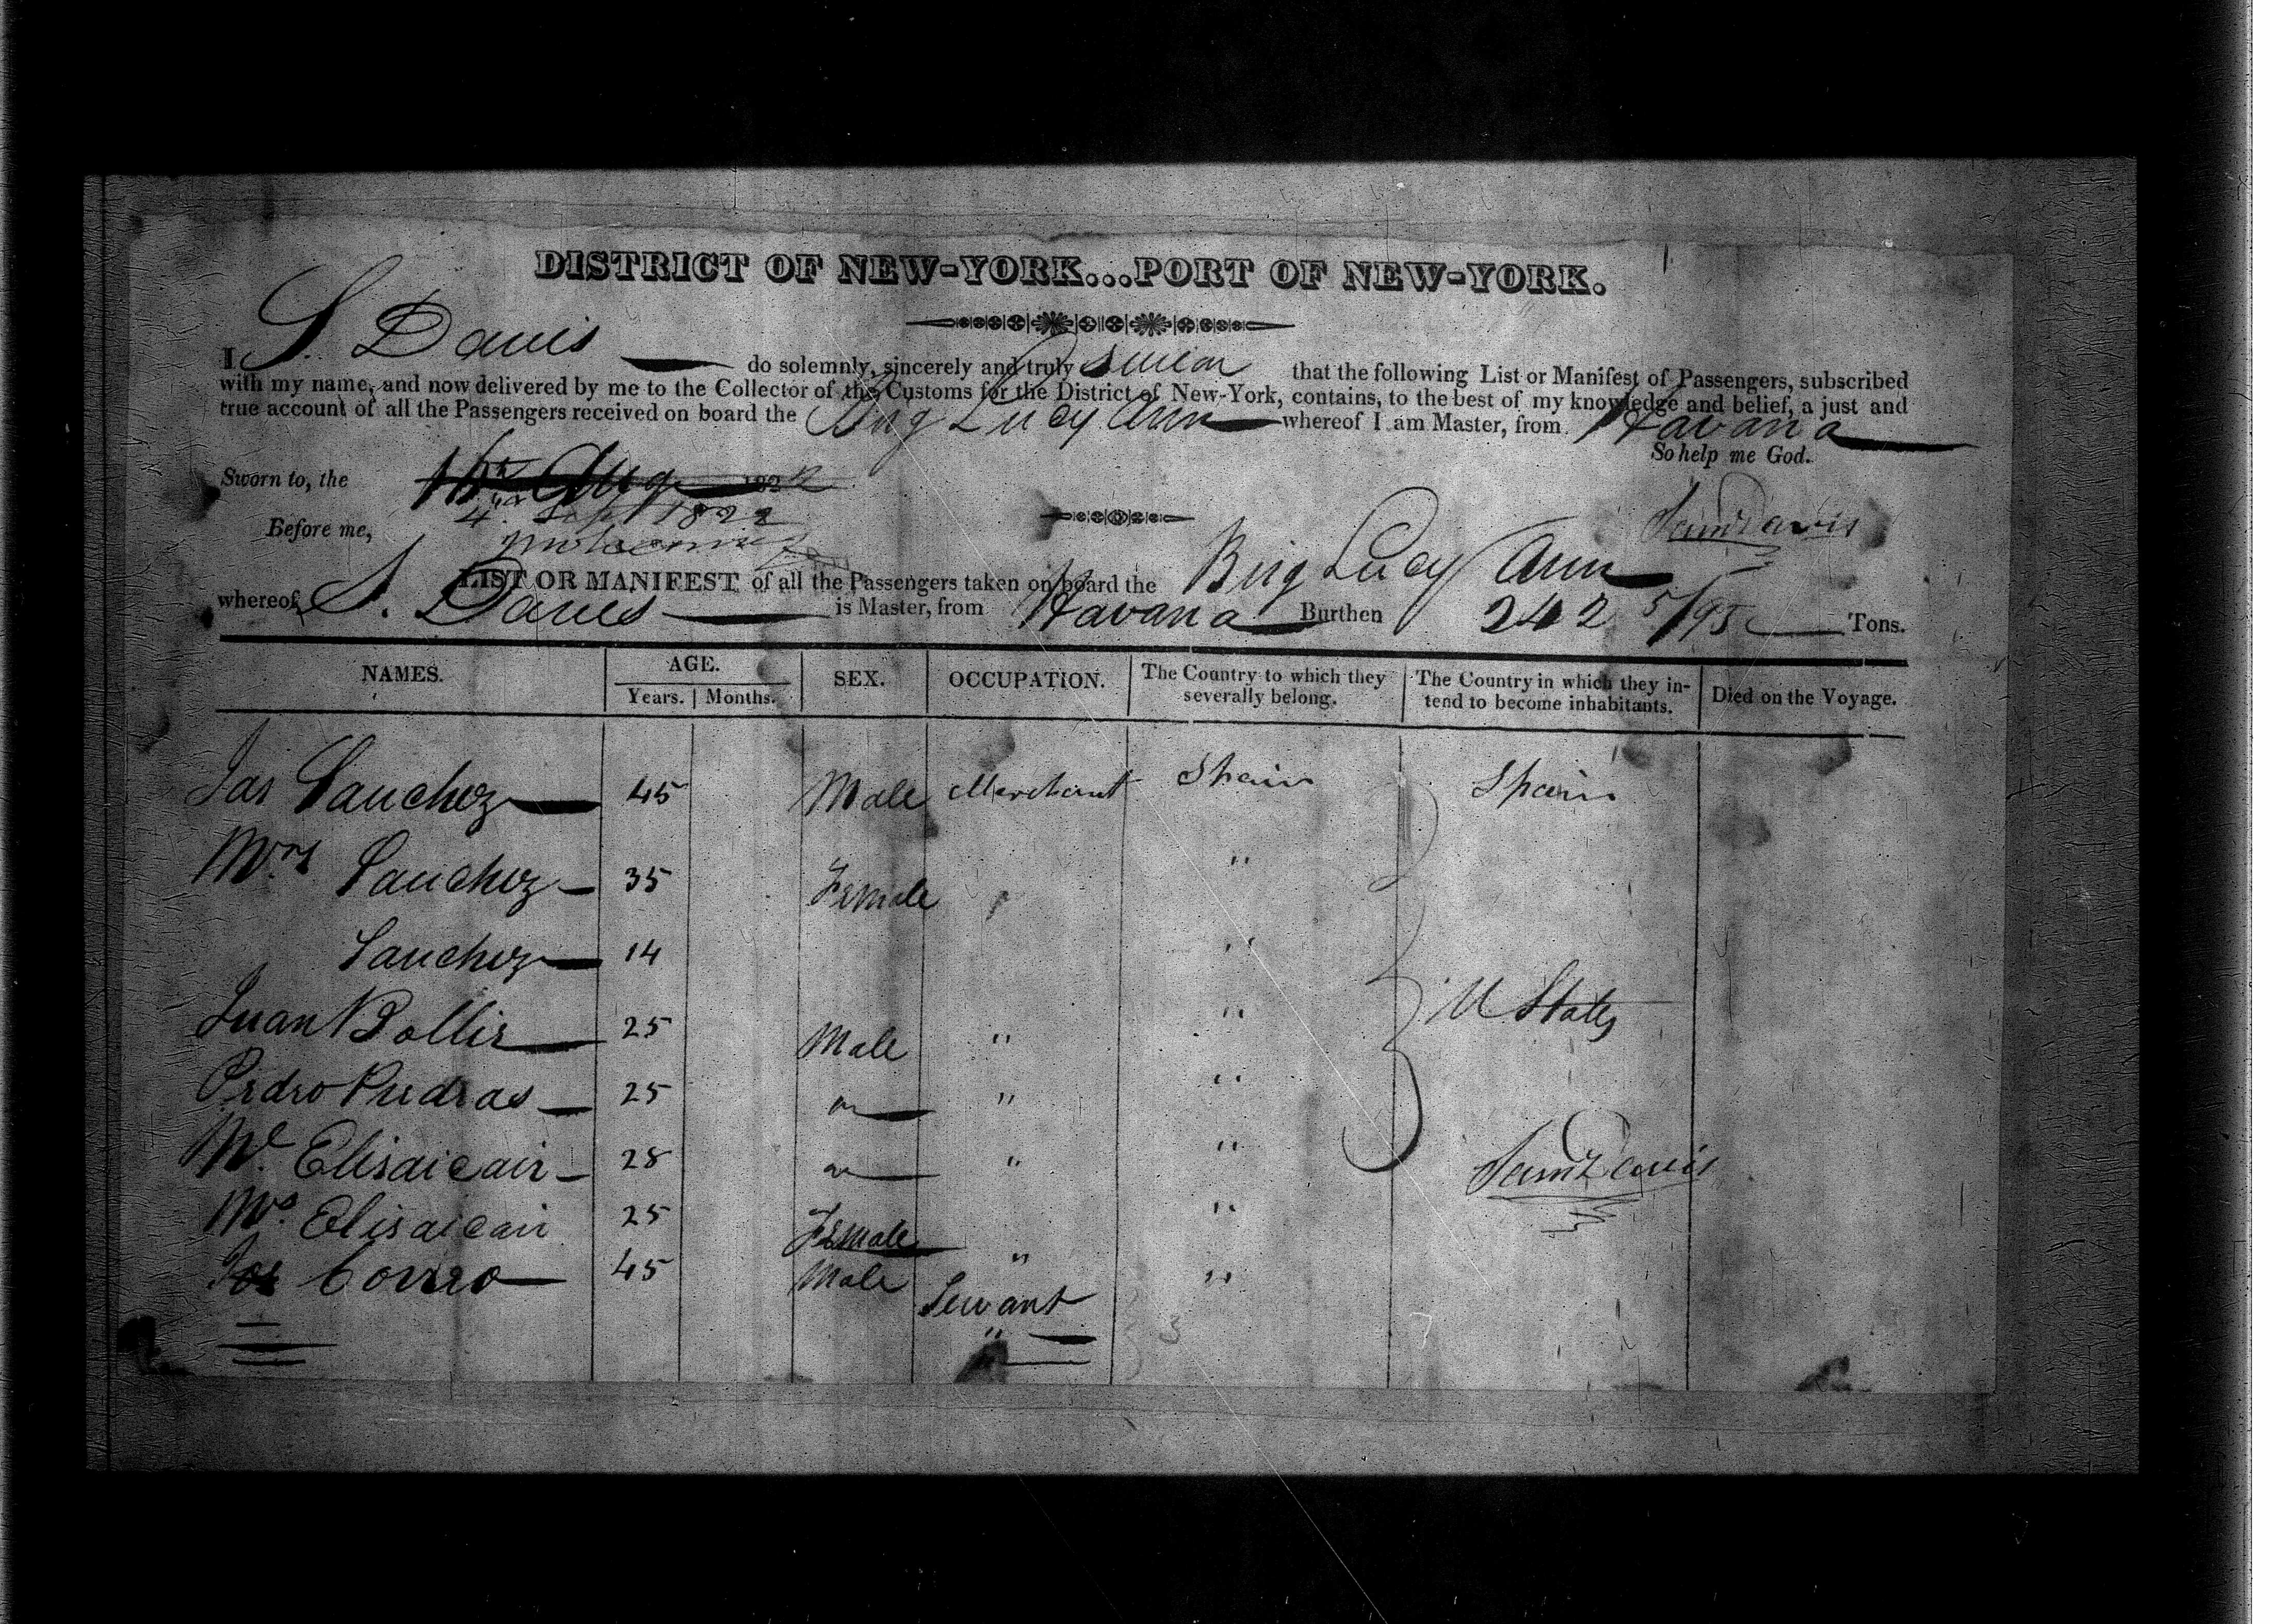 DISTRICT OF NEW-YORK...PORT OF NEW-YORK.
I S. Davis do solemnly, sincerely and truly swear that the following List or Manifest of Passengers, subscribed
with my name, and now delivered by me to the Collector of the Customs for the District of New-York, contains, to the best of my knowledge and belief, a just and
true account of all the Passengers received on board the Brig Lucy Ann whereof I am Master, from Havana
So help me God.
Sworn to, the Aug 182
4 Sept 1822
Saml Davis
Before me,
LIST OR MANIFEST of all the Passengers taken on board the Brig Lucy Ann
whereof S. Davis is Master, from Havana Burthen 242 5/95 Tons.
NAMES. AGE. SEX. OCCUPATION. The Country to which they severally belong. The Country in which they intend to become inhabitants. Died on the Voyage.
Years. Months.
Jas Sanchez 45 Male Merchant Spain Spain
Mrs Sanchez 35 Female "
Sanchez 14 "
Juan Bollis 25 Male " " U States
Pedro Piedras 25 " "
Mr. Elisaicair 28 " "
Saml Davis
Mrs. Elisaicair 25 Female " "
Jos Correo 45 Male "
Servant
"